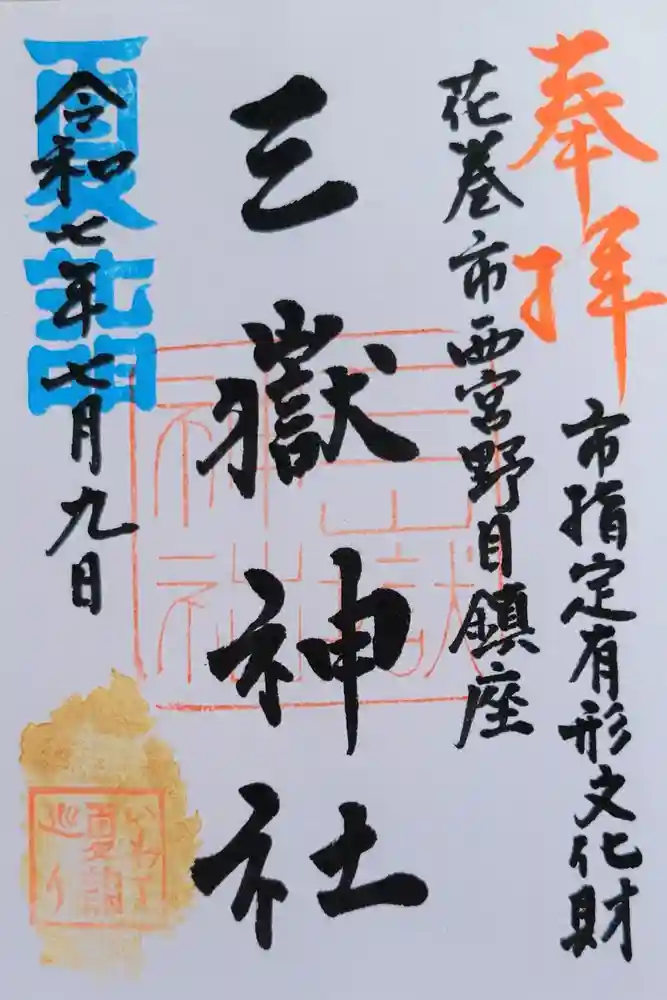 奉拝
市指定有形文化財
花巻市西宮野目鎮座
三嶽神社
三嶽
神社
令和七年七月九日
いわて
夏詣
巡り